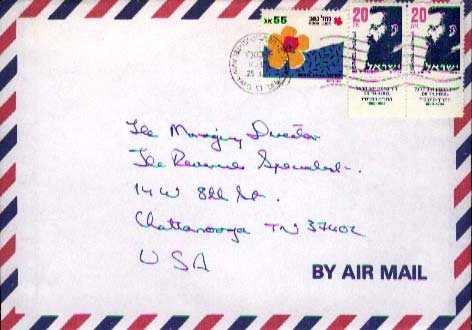 55 אג
מזל טוב
20
20
ישראל
ישראל
The Managing Director
The Revenue Specialist.
14 W 8th St.
Chattanooga TN 37402
USA
BY AIR MAIL